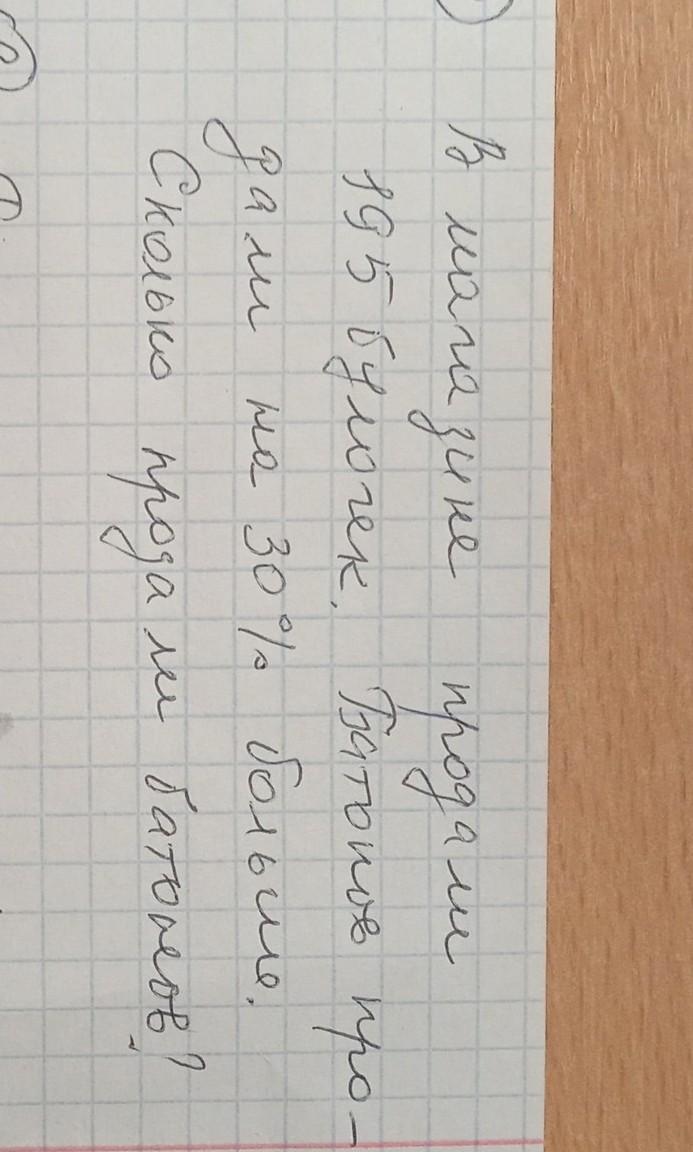 В магазине продали
195 булочек. Батонов про-
дали на 30% больше.
Сколько продали батонов?